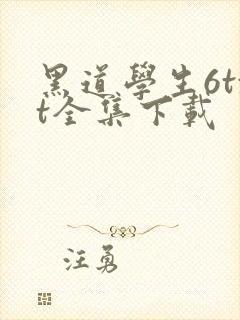 黑道學生6tx
t全集下載
汪勇